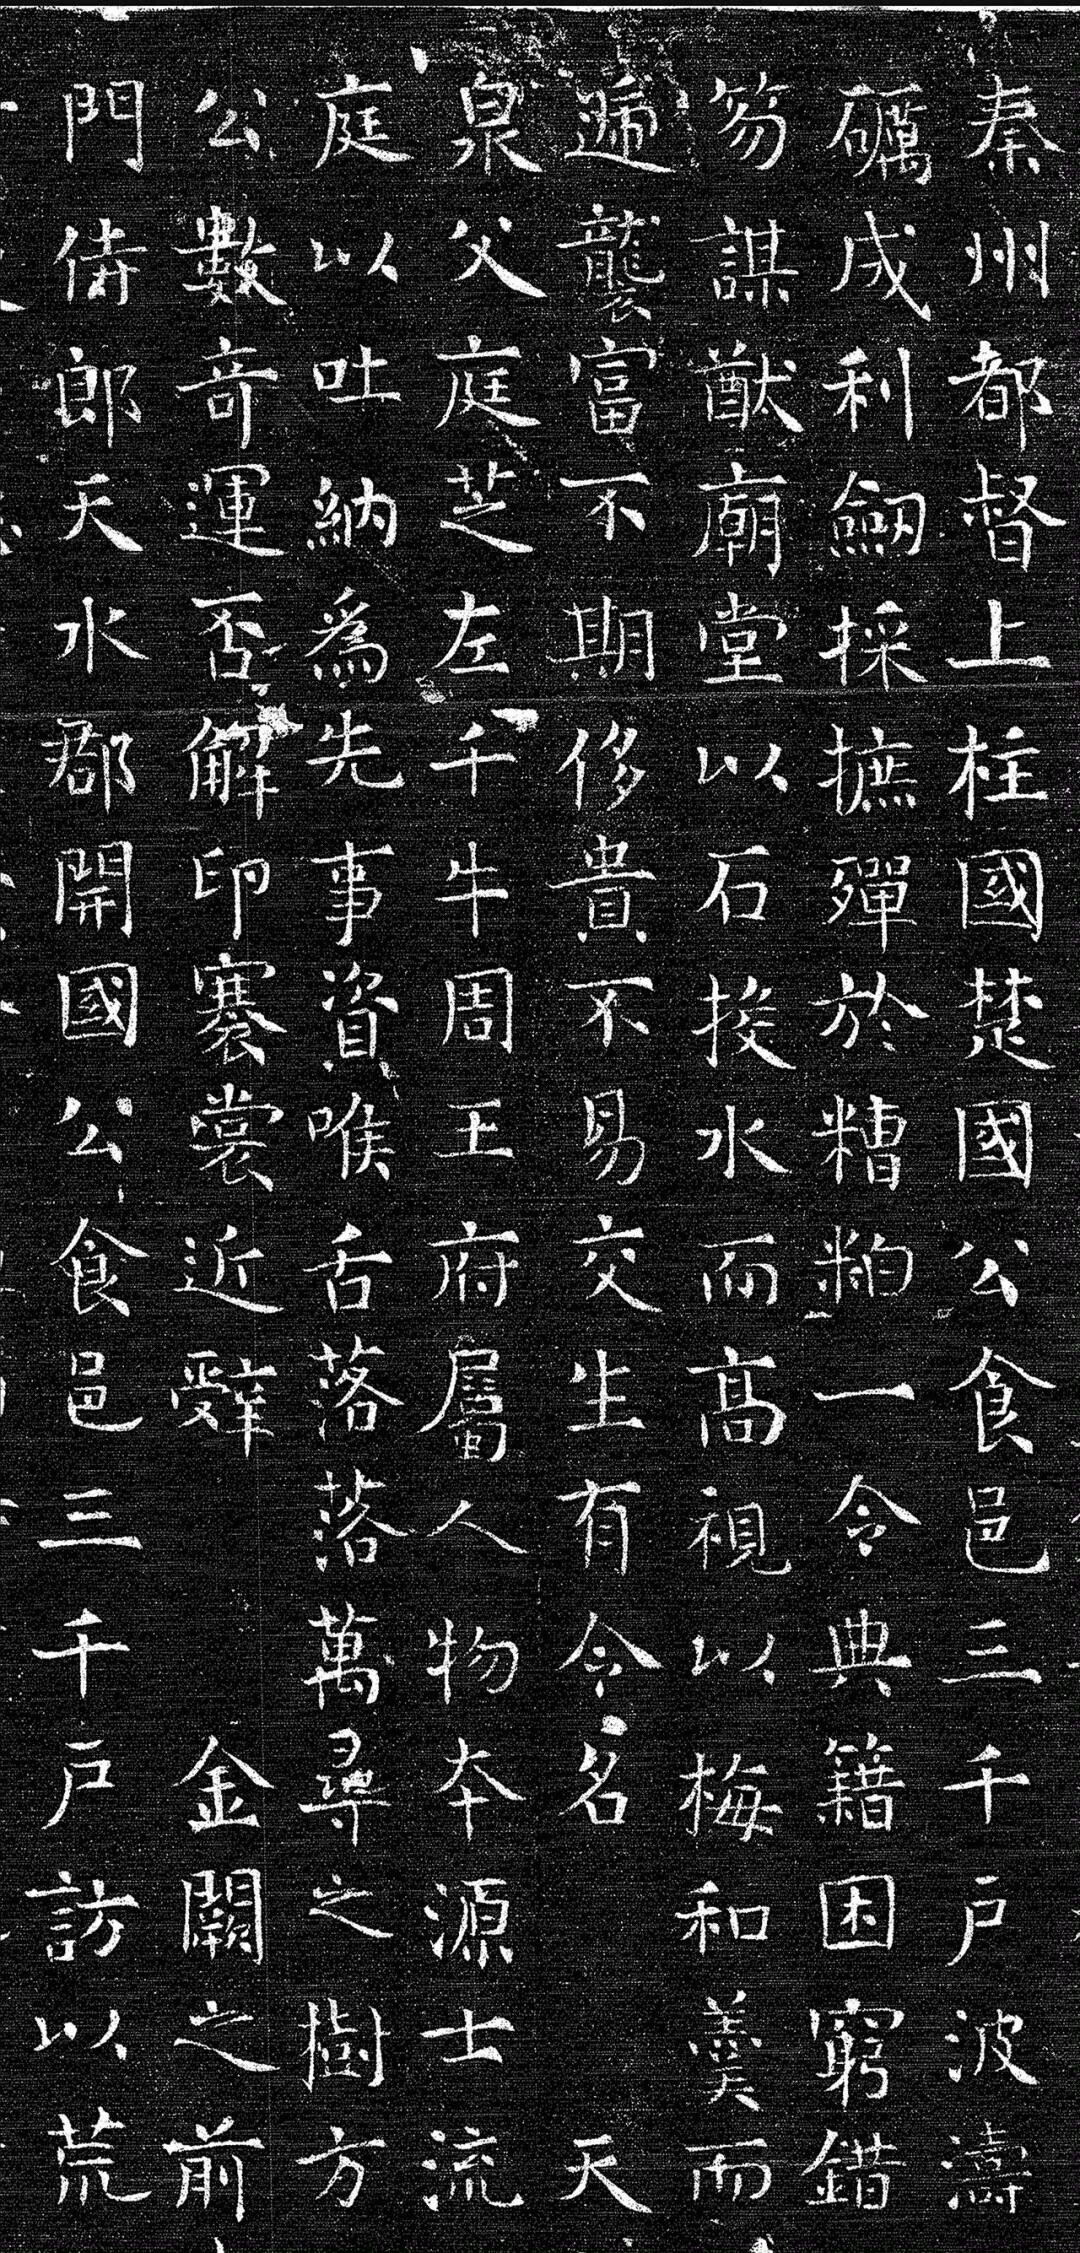 秦州都督上柱國楚國公食邑三千戶波濤
礪成利劒採摭殫於糟粕一令典籍困窮錯
笏謀猷廟堂以石投水而高視以梅和羹而
遞襲富不期侈貴不易交生有令名天
泉父庭芝左千牛周王府屬人物本源士流
庭以吐納爲先事資喉舌落落萬尋之樹方
公數奇運否解印褰裳近辤金闕之前
門侍郎天水郡開國公食邑三千戶訪以荒